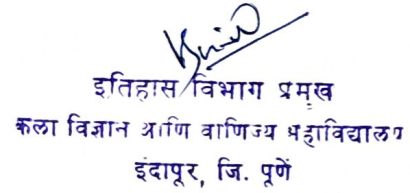 इतिहास विभाग प्रमुख
कला विज्ञान आणि वाणिज्य महाविद्यालय
इंदापूर, जि. पूणें